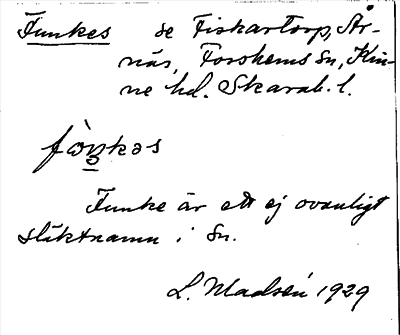 Funkes se Fiskartorp, År-
näs, Forshems sn, Kin-
ne hd. Skarab. l.
fàŋkəs
Funke är ett ej ovanligt
släktnamn i sn.
L. Madsén 1929